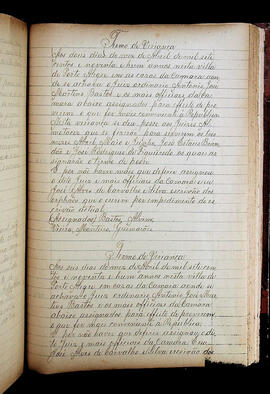 Termo de Vereança
Aos dois dias do mez de Abril de mil sete
centos e noventa e hum annos nesta villa
de Porto Alegre em as casas da Camara aon
de se achava o Juiz ordinario Antonio José
Martins Bastos e os mais officiaes da Ca
mara abaixo assignados para effeito de pro
verem o que for mais conveniente á Republica
Nesta vereança se deu posse aos Juizes Al
que se fizerão para servirem os
mezes Abril Maio e Junho, José
e José Rodrigues de Figueiredo os quaes as
signarão o termo de posse.
E por não haver mais que deferir assignou
o dito Juiz e mais officiaes da Camara eu
José Alves de Carvalho e Silva escrivão dos
orphãos que o escrevi por impedimento do es
crivão actual.
(Assignados) Bastos,
Vieira, Guimarães
Termo de Vereança
Aos seis dias do mez de Abril de mil setecen
tos e noventa e hum annos nesta villa de
Porto Alegre em casas da Camara aonde se
achava o Juiz ordinario Antonio José Mar
tins Bastos e os mais officiaes da Camara
abaixo assignados para effeito de proverem
o que for mais conveniente a Republica.
E por não haver que deferir assignou o di
to Juiz e mais officiaes da Camara. E eu
José Alves de Carvalho e Silva escrivão dos